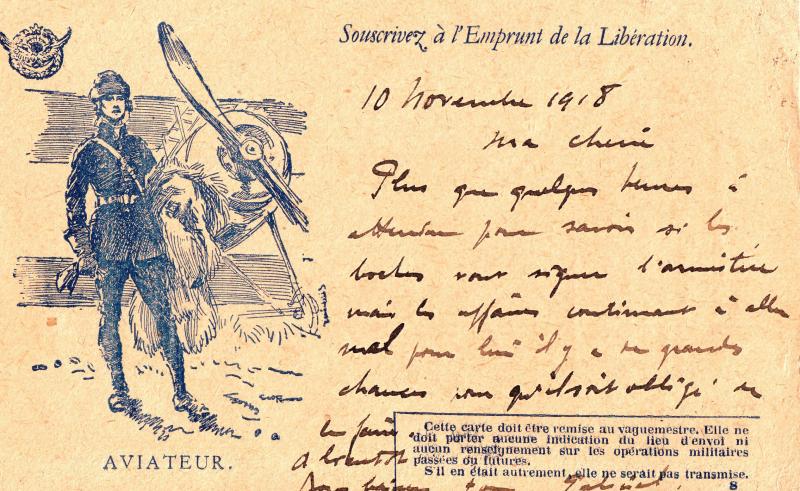 Souscrivez à l'Emprunt de la Libération.
10 Novembre 1918
Ma chérie
Plus que quelques heures à
attendre pour savoir si les
boches vont signer l'armistice
mais les affaires continuant à aller
mal pour lui il y a de grandes
chances pour qu'il soit obligé de
le faire.
A bientôt
Bons baisers ton
AVIATEUR.
Cette carte doit être remise au vaguemestre. Elle ne
doit porter aucune indication du lieu d'envoi ni
aucun renseignement sur les opérations militaires
passées ou futures.
S'il en était autrement, elle ne serait pas transmise.
8